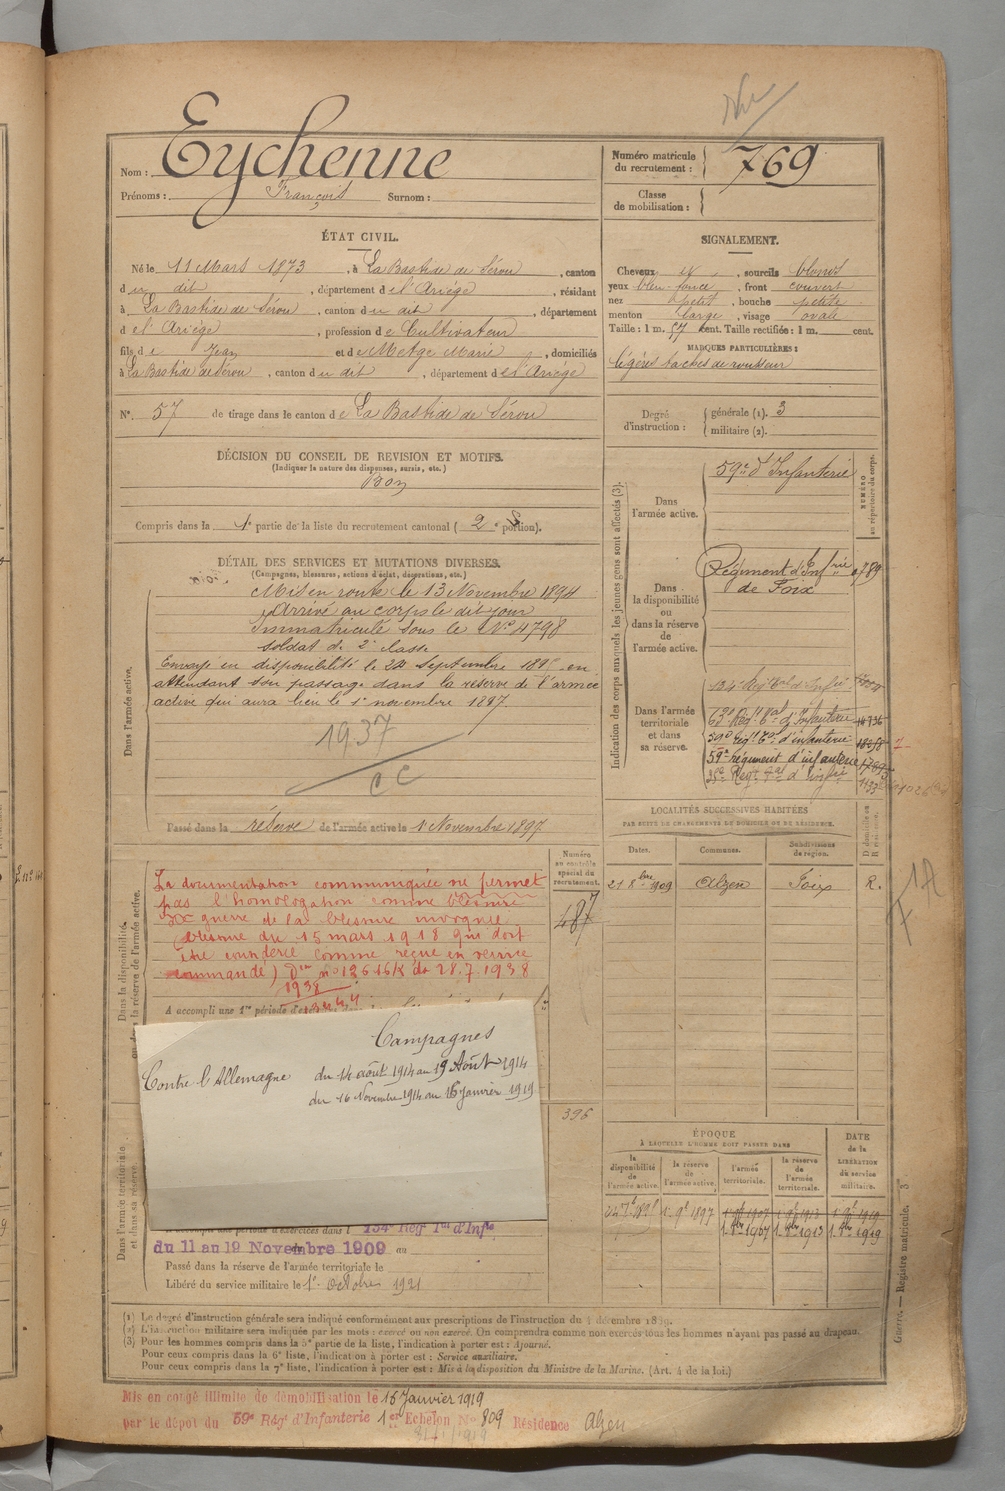 Nom : Eychenne
Prénoms : François Surnom :
Numéro matricule du recrutement : 769
Classe de mobilisation :
ÉTAT CIVIL.
Né le 11 Mars 1873, à La Bastide de Sérou, canton
du dit, département de l'Ariège, résidant
à La Bastide de Sérou, canton du dit, département
de l'Ariège, profession de Cultivateur
fils de Jean et de Metge Marie, domiciliés
à La Bastide de Sérou, canton du dit, département de l'Ariège
N°. 57 de tirage dans le canton de La Bastide de Sérou
SIGNALEMENT.
Cheveux et, sourcils blonds
yeux bleu foncé, front couvert
nez petit, bouche petite
menton large, visage ovale
Taille : 1 m. 57 cent. Taille rectifiée : 1 m. cent.
MARQUES PARTICULIÈRES :
légères taches de rousseur
Degré d'instruction : générale (1). 3
militaire (2).
DÉCISION DU CONSEIL DE REVISION ET MOTIFS.
(Indiquer la nature des dispenses, sursis, etc.)
Bon
Compris dans la 1e partie de la liste du recrutement cantonal ( 2e portion).
DÉTAIL DES SERVICES ET MUTATIONS DIVERSES.
(Campagnes, blessures, actions d'éclat, décorations, etc.)
Dans l'armée active.
Mis en route le 13 Novembre 1894
Arrivé au corps le dit jour
Immatriculé sous le N° 4798
soldat de 2e classe
Envoyé en disponibilité le 24 Septembre 1895 en
attendant son passage dans la réserve de l'armée
active qui aura lieu le 1er novembre 1897.
1937
Passé dans la réserve de l'armée active le 1 Novembre 1897
Indication des corps auxquels les jeunes gens sont affectés (3).
NUMÉRO au répertoire du corps.
Dans l'armée active.
59e d'Infanterie
Dans la disponibilité ou dans la réserve de l'armée active.
Régiment d'Infrie de Foix 0789
Dans l'armée territoriale et dans sa réserve.
134e Régt Tal d'Infie
63e Régt Tal d'Infanterie 14736
59e régt Tal d'infanterie
59e régiment d'infanterie
LOCALITÉS SUCCESSIVES HABITÉES
PAR SUITE DE CHANGEMENTS DE DOMICILE OU DE RÉSIDENCE.
D domicile ou R résidence.
Dates. Communes. Subdivisions de région.
21 8bre 1909 Alzen Foix R.
Dans la disponibilité ou dans la réserve de l'armée active.
Numéro au contrôle spécial du recrutement.
487
La documentation communiquée ne permet
pas l'homologation comme blessure
de guerre de la blessure invoquée
(blessure du 15 mars 1918 qui doit
être considérée comme reçue en service
commandé) Don n° 12616K du 28.7.1938
1938
A accompli une 1re période d'ex
Campagnes
Contre l'Allemagne du 14 août 1914 au 19 Août 1914
du 16 Novembre 1914 au 15 Janvier 1919
396
Dans l'armée territoriale et dans sa réserve.
période d'exercices dans l 134e Régt Tal d'Infie
du 11 au 19 Novembre 1909 au
Passé dans la réserve de l'armée territoriale le
Libéré du service militaire le 1er Octobre 1921
ÉPOQUE
À LAQUELLE L'HOMME DOIT PASSER DANS
DATE de la LIBÉRATION du service militaire.
la disponibilité de l'armée active. la réserve de l'armée active. l'armée territoriale. la réserve de l'armée territoriale.
24 7bre 1895 1. 9bre 1897 1. 9bre 1907 1. 9bre 1913 1. 9bre 1919
1. 8bre 1907 1. 8bre 1913 1. 8bre 1919
Guerre. — Registre matricule. 3
(1) Le degré d'instruction générale sera indiqué conformément aux prescriptions de l'instruction du 4 décembre 1889.
(2) L'instruction militaire sera indiquée par les mots : exercé ou non exercé. On comprendra comme non exercés tous les hommes n'ayant pas passé au drapeau.
(3) Pour les hommes compris dans la 5e partie de la liste, l'indication à porter est : Ajourné.
Pour ceux compris dans la 6e liste, l'indication à porter est : Service auxiliaire.
Pour ceux compris dans la 7e liste, l'indication à porter est : Mis à la disposition du Ministre de la Marine. (Art. 4 de la loi.)
Mis en congé illimité de démobilisation le 15 Janvier 1919
par le dépôt du 59e Régt d'Infanterie 1er Echelon No 809 Résidence Alzen